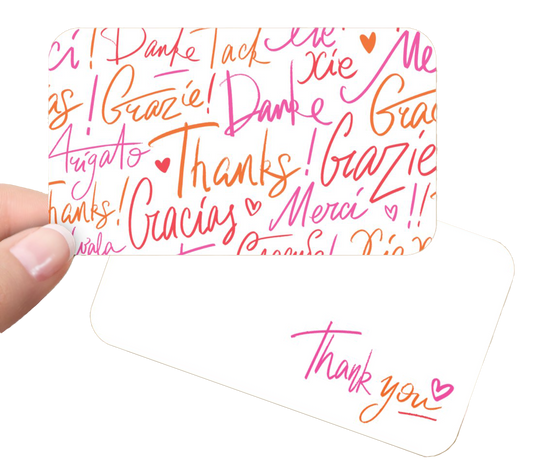 Danke Tack
Xie
Merc
Grazie! Danke Grac
Arigato Thanks! Grazie
hanks! Gracias Merci !!
Thank you